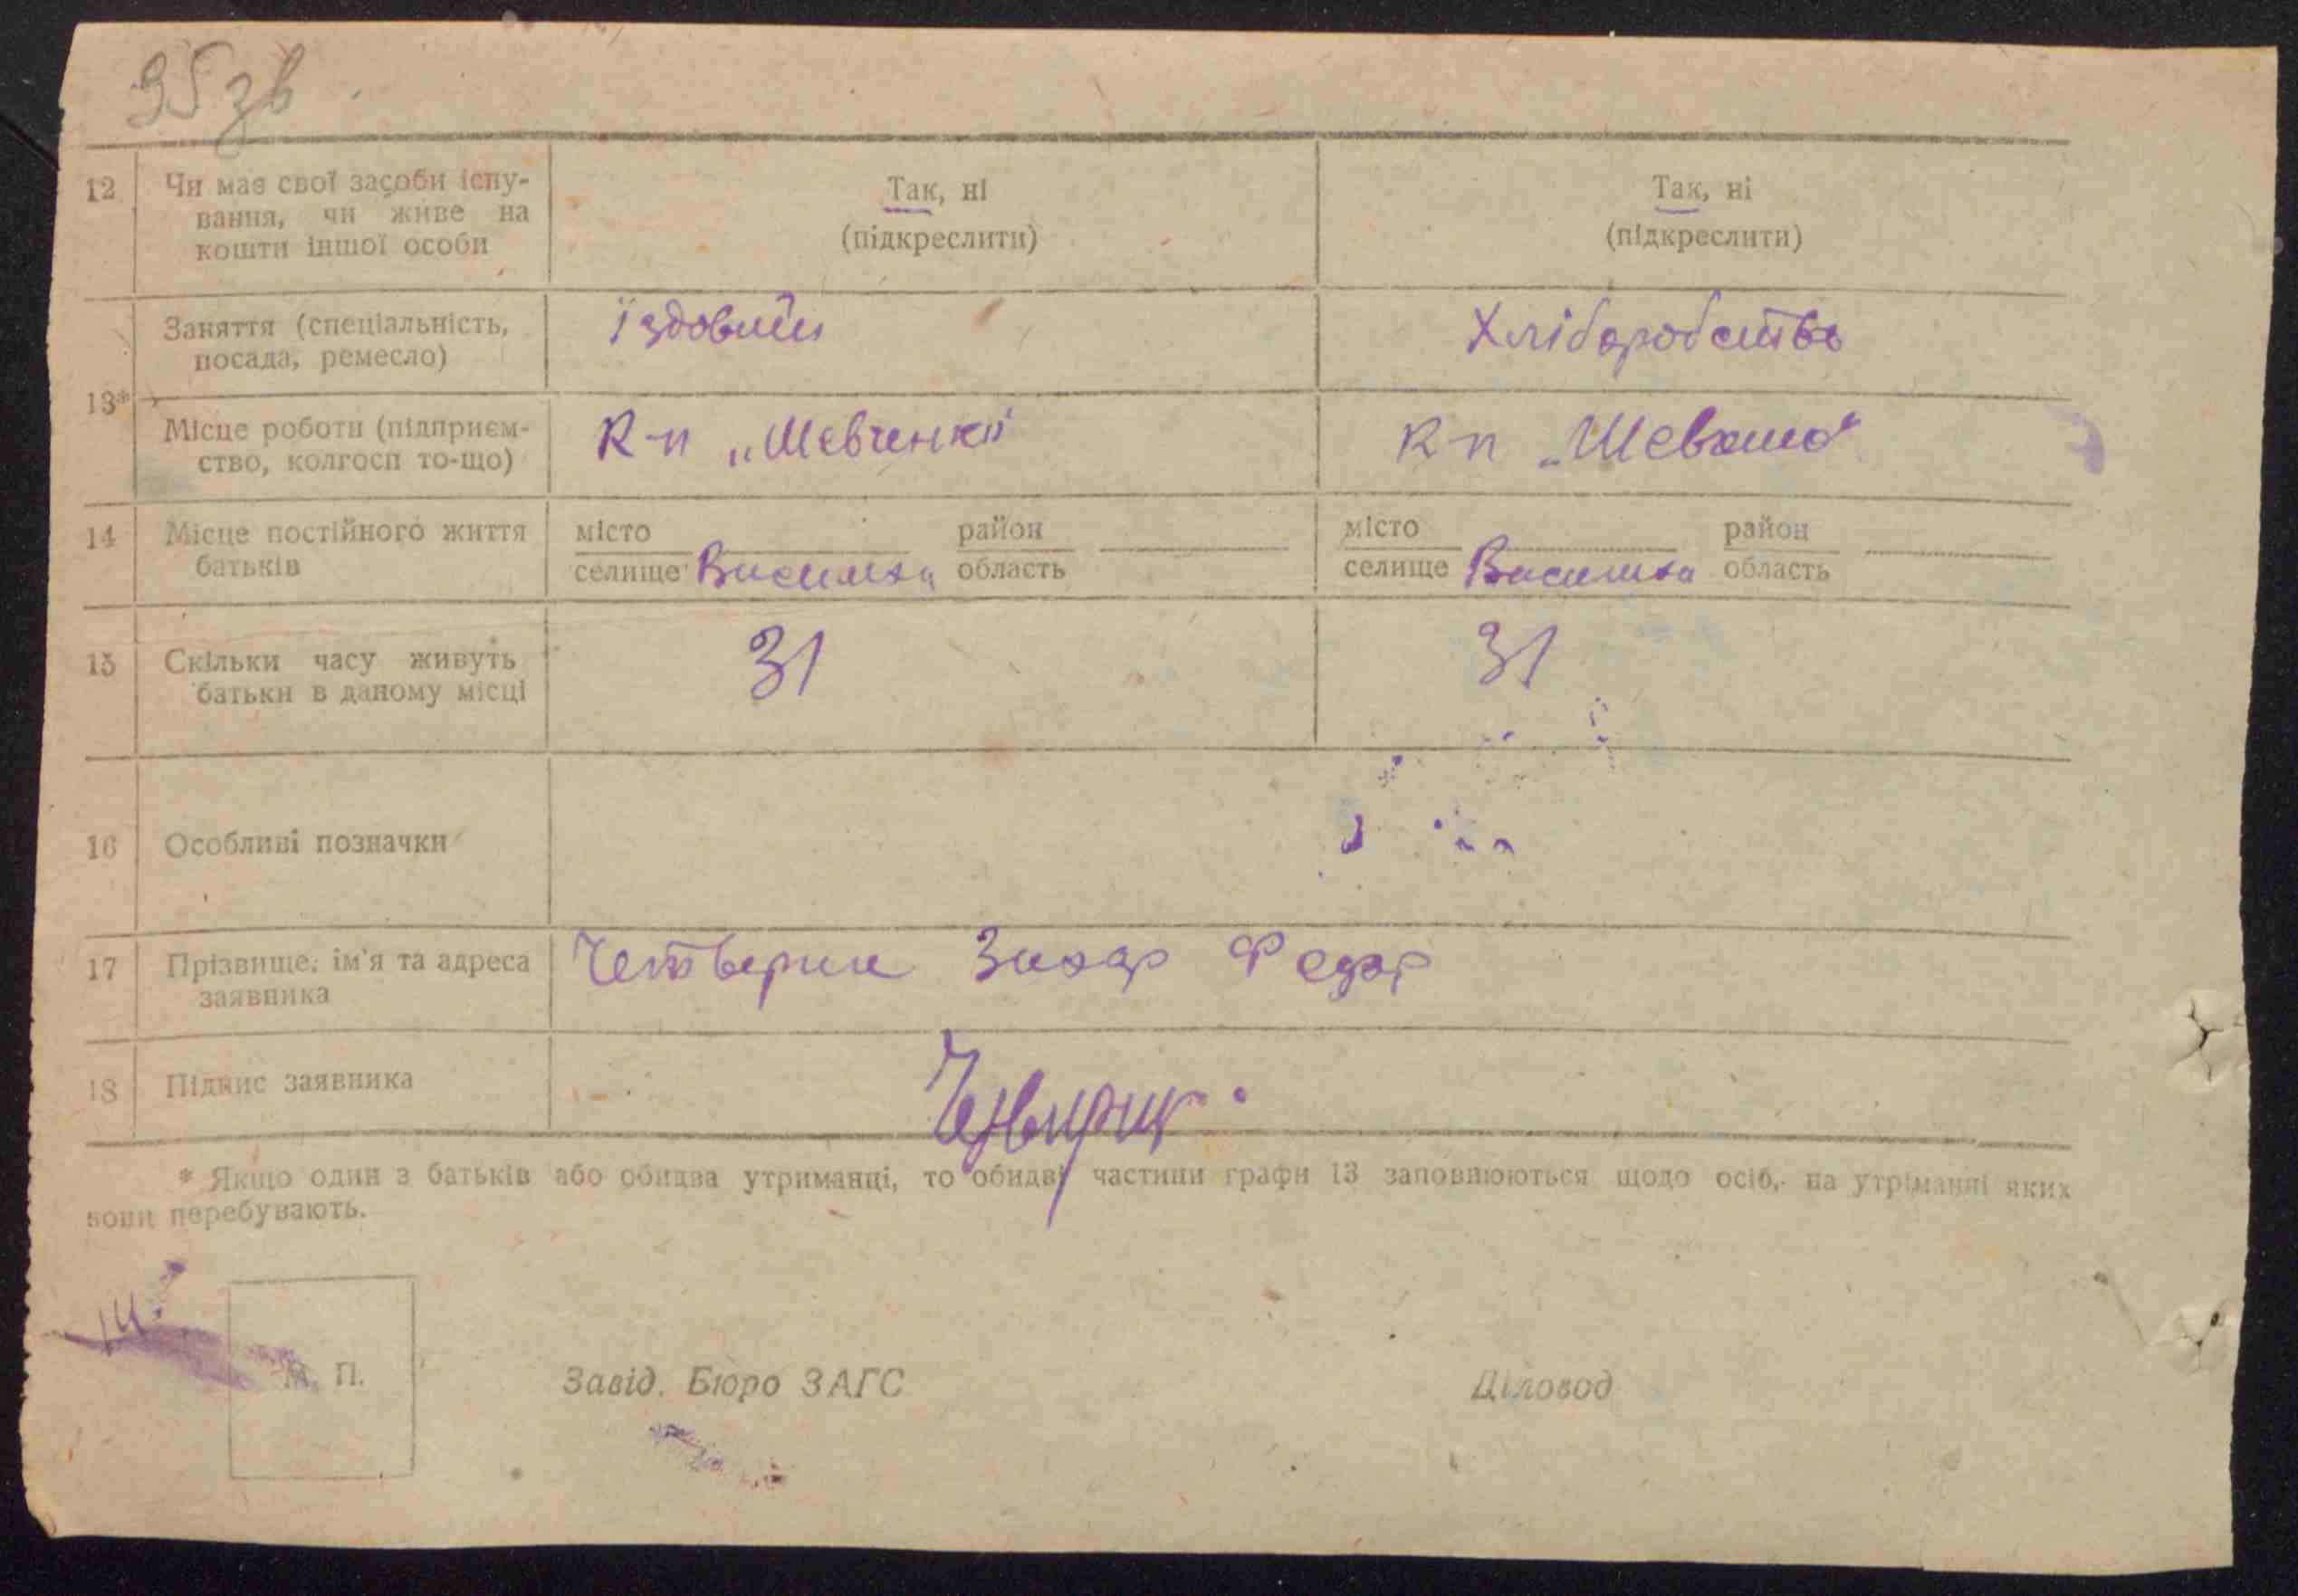 95 зв
12 Чи має свої засоби існу- Так, ні Так, ні
вання, чи живе на (підкреслити) (підкреслити)
кошти іншої особи
Заняття (спеціальність, їздовий Хліборобство
посада, ремесло)
13*
Місце роботи (підприєм- К-п „Шевченка" К-п „Шевченко"
ство, колгосп то-що)
14 Місце постійного життя місто район місто район
батьків селище область селище область
15 Скільки часу живуть 31 31
батьки в даному місці
16 Особливі позначки
17 Прізвище, ім'я та адреса Четверик Захар Федор
заявника
18 Підпис заявника
* Якщо один з батьків або обидва утриманці, то обидві частини графи 13 заповнюються щодо осіб, на утріманні яких
вони перебувають.
М. П.
Завід. Бюро ЗАГС Діловод